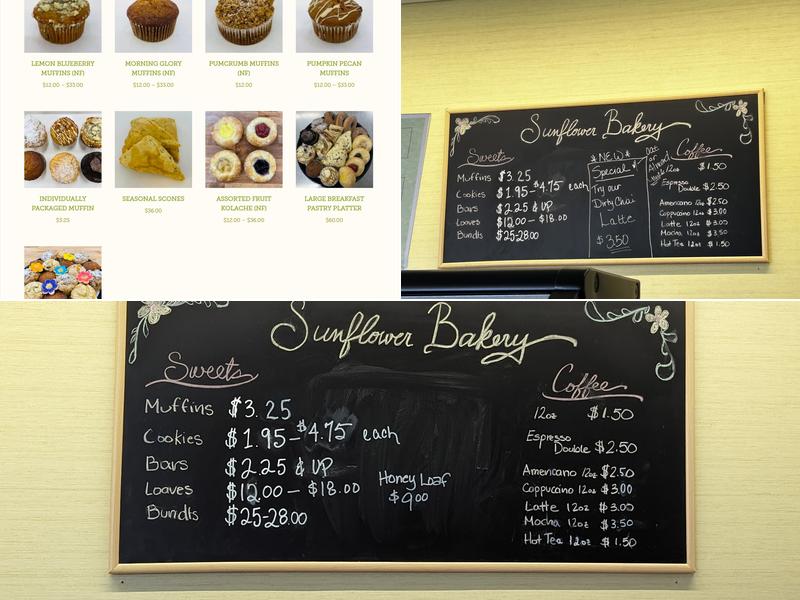 LEMON BLUEBERRY MUFFINS (NF)
$12.00 – $33.00
MORNING GLORY MUFFINS (NF)
$12.00 – $33.00
PUMCRUMB MUFFINS (NF)
$12.00
PUMPKIN PECAN MUFFINS
$12.00 – $33.00
INDIVIDUALLY PACKAGED MUFFIN
$3.25
SEASONAL SCONES
$36.00
ASSORTED FRUIT KOLACHE (NF)
$12.00 – $36.00
LARGE BREAKFAST PASTRY PLATTER
$60.00
Sunflower Bakery
Sweets
Muffins $3.25
Cookies $1.95–$4.75 each
Bars $2.25 & UP
Loaves $12.00 – $18.00
Bundts $25-28.00
*NEW*
Special
Try our
Dirty Chai
Latte
$3.50
Oat
or
Almond
Milk
Coffee
12oz $1.50
Espresso
Double $2.50
Americano 12oz $2.50
Cappuccino 12oz $3.00
Latte 12oz $3.00
Mocha 12oz $3.50
Hot Tea 12oz $1.50
Sunflower Bakery
Sweets
Muffins $3.25
Cookies $1.95–$4.75 each
Bars $2.25 & UP
Loaves $12.00 – $18.00
Bundts $25-28.00
Honey Loaf
$9.00
Coffee
12oz $1.50
Espresso
Double $2.50
Americano 12oz $2.50
Cappuccino 12oz $3.00
Latte 12oz $3.00
Mocha 12oz $3.50
Hot Tea 12oz $1.50